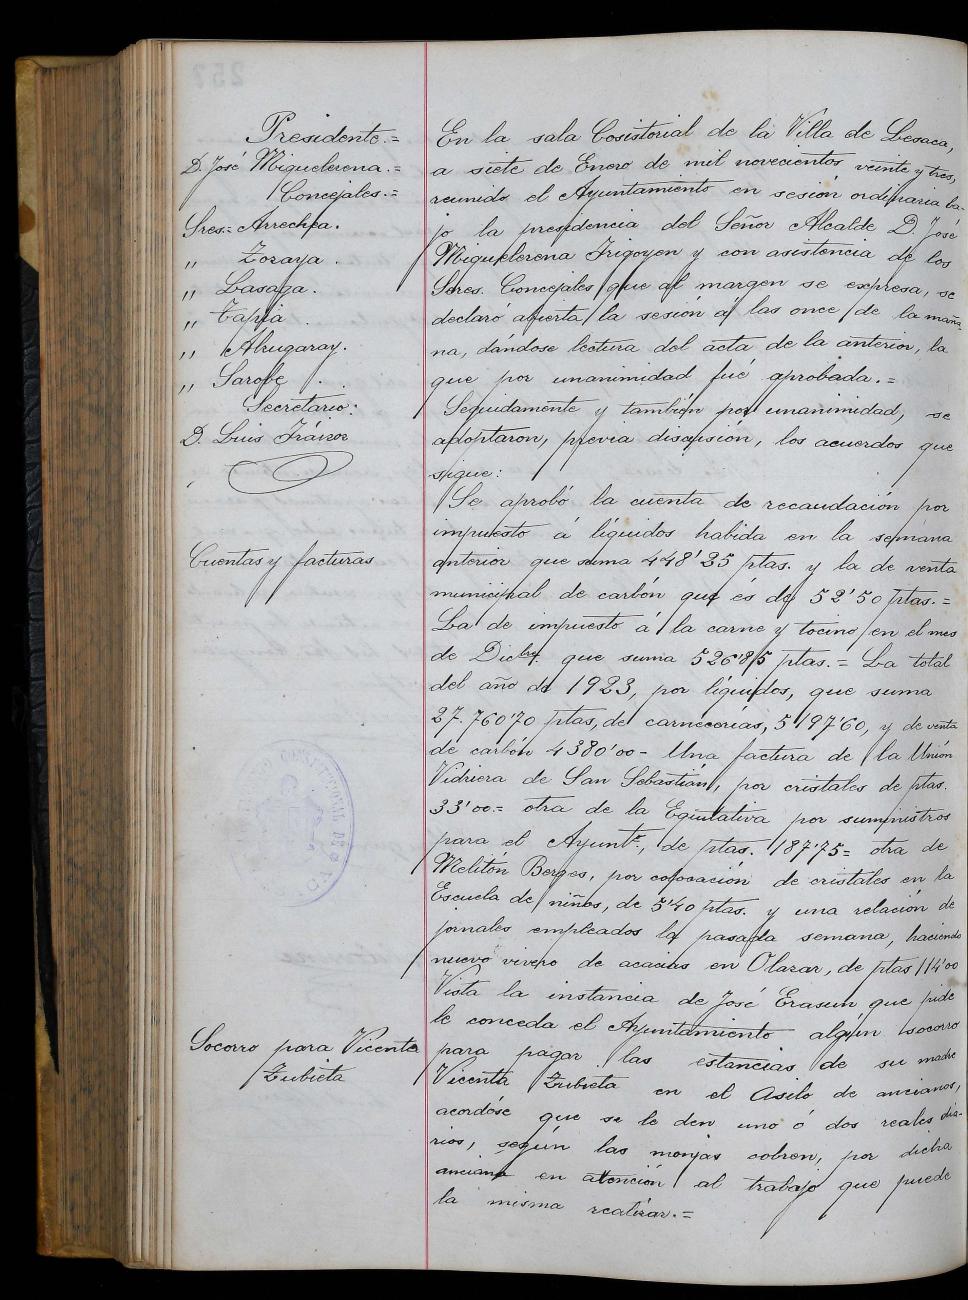 Presidente.=
D. José Miguelerena.=
Concejales.=
Sres.= Arrechea.
" Zoraya.
" Lasaga.
" Tapia.
" Alzugaray.
" Sarobe.
Secretario:
D. Luis Iráizoz
En la sala Cosistorial de la Villa de Lesaca,
a siete de Enero de mil novecientos veinte y tres,
reunido el Ayuntamiento en sesión ordinaria ba-
jo la presidencia del Señor Alcalde D. José
Miguelerena Irigoyen y con asistencia de los
Sres. Concejales que al margen se expresa, se
declaró abierta la sesión á las once de la maña-
na, dándose lectura del acta de la anterior, la
que por unanimidad fue aprobada.=
Seguidamente y también por unanimidad, se
adoptaron, previa discusión, los acuerdos que
sigue:
Cuentas y facturas
Se aprobó la cuenta de recaudación por
impuesto á líquidos habida en la semana
anterior que suma 448'25 ptas. y la de venta
municipal de carbón que és de 52'50 ptas.=
La de impuesto á la carne y tocino en el mes
de Dicbre. que suma 526'85 ptas.= La total
del año de 1923, por líquidos, que suma
27.760'70 ptas, de carnecerías, 5197'60, y de venta
de carbón 4380'00- Una factura de la Unión
Vidriera de San Sebastián, por cristales de ptas.
33'00.= otra de la Equitativa por suministros
para el Ayunto., de ptas. 187'75= otra de
Melitón Berges, por colocación de cristales en la
Escuela de niños, de 5'40 ptas. y una relación de
jornales empleados la pasada semana, haciendo
nuevo vivero de acacias en Olazar, de ptas 114'00
Socorro para Vicenta
Zubieta
Vista la instancia de José Erasun que pide
le conceda el Ayuntamiento algún socorro
para pagar las estancias de su madre
Vicenta Zubieta en el Asilo de ancianos,
acordóse que se le den uno ó dos reales dia-
rios, según las monjas cobren, por dicha
anciana en atención al trabajo que puede
la misma realizar.=